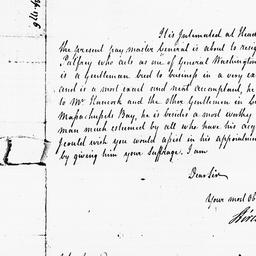 It is Intimated at Head
the present pay master General is about to resig
Palfrey who acts as one of General Washington
is a Gentleman bred to business in a very ex
and is a most exact and neat accomptant, he
to Mr Hancock and the other Gentlemen in
Massachusetts Bay, he is besides a most worthy
man much esteemed by all who have his acq
I could wish you would assist in his appointmen
by giving him your Suffrage. I am
Dear Sir
Your most Ob